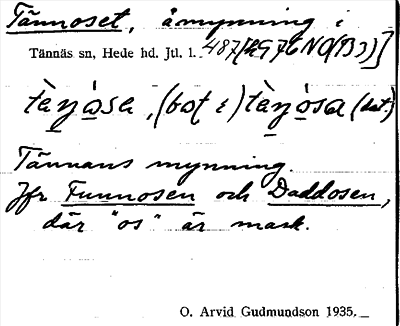 Tännoset, åmynning i
Tännäs sn, Hede hd. Jtl. l.
tàṉo̱sa, (bot i) tàṉo̱sa (dat.)
Tännans mynning.
Jfr Funnosen och Daddosen,
där "os" är mask.
O. Arvid Gudmundson 1935.